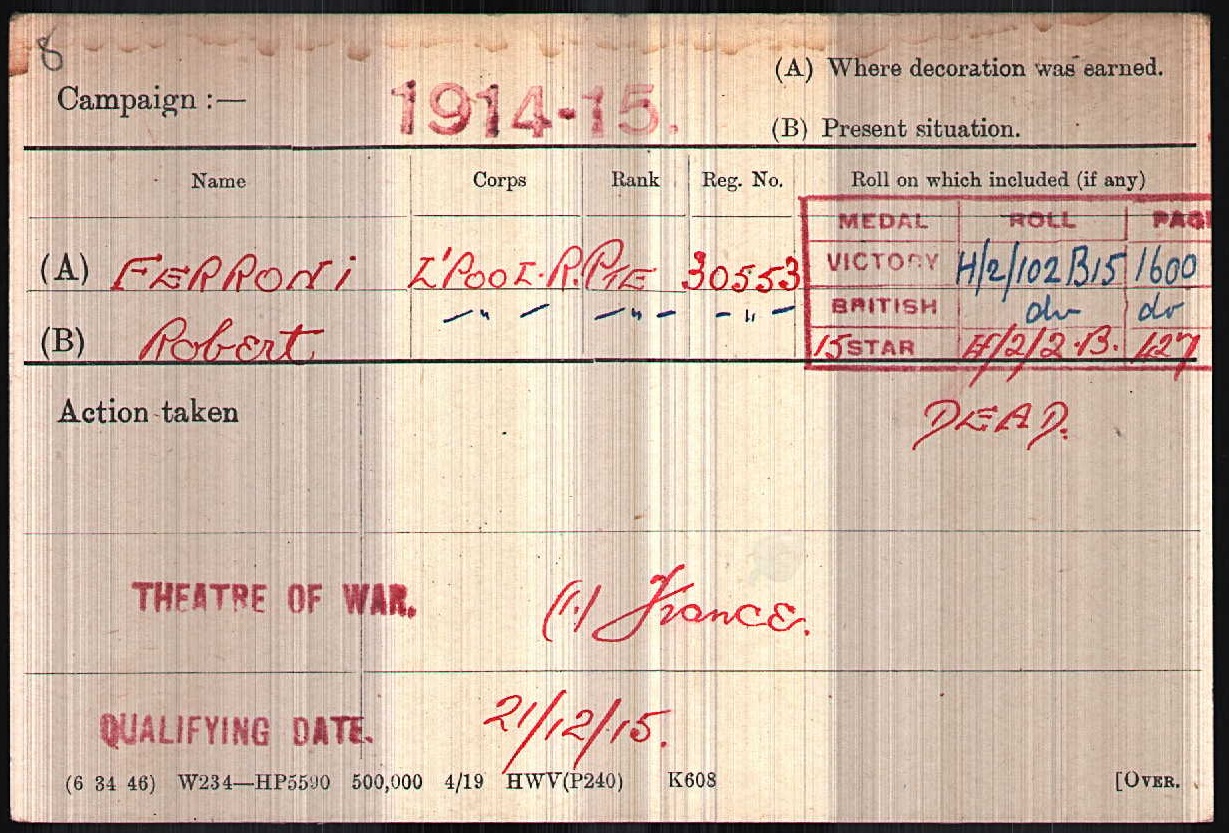 8
(A) Where decoration was earned.
Campaign :— 1914-15.
(B) Present situation.
Name Corps Rank Reg. No. Roll on which included (if any)
MEDAL ROLL PAGE
(A) FERRONI L'POOL.R. PTE 30553 VICTORY H/2/102B15 1600
(B) Robert —"— —"— —"— BRITISH do do
15 STAR H/2/2.B. 427
Action taken DEAD.
THEATRE OF WAR. (1) France.
QUALIFYING DATE. 21/12/15.
(6 34 46) W234—HP5590 500,000 4/19 HWV(P240) K608 [OVER.